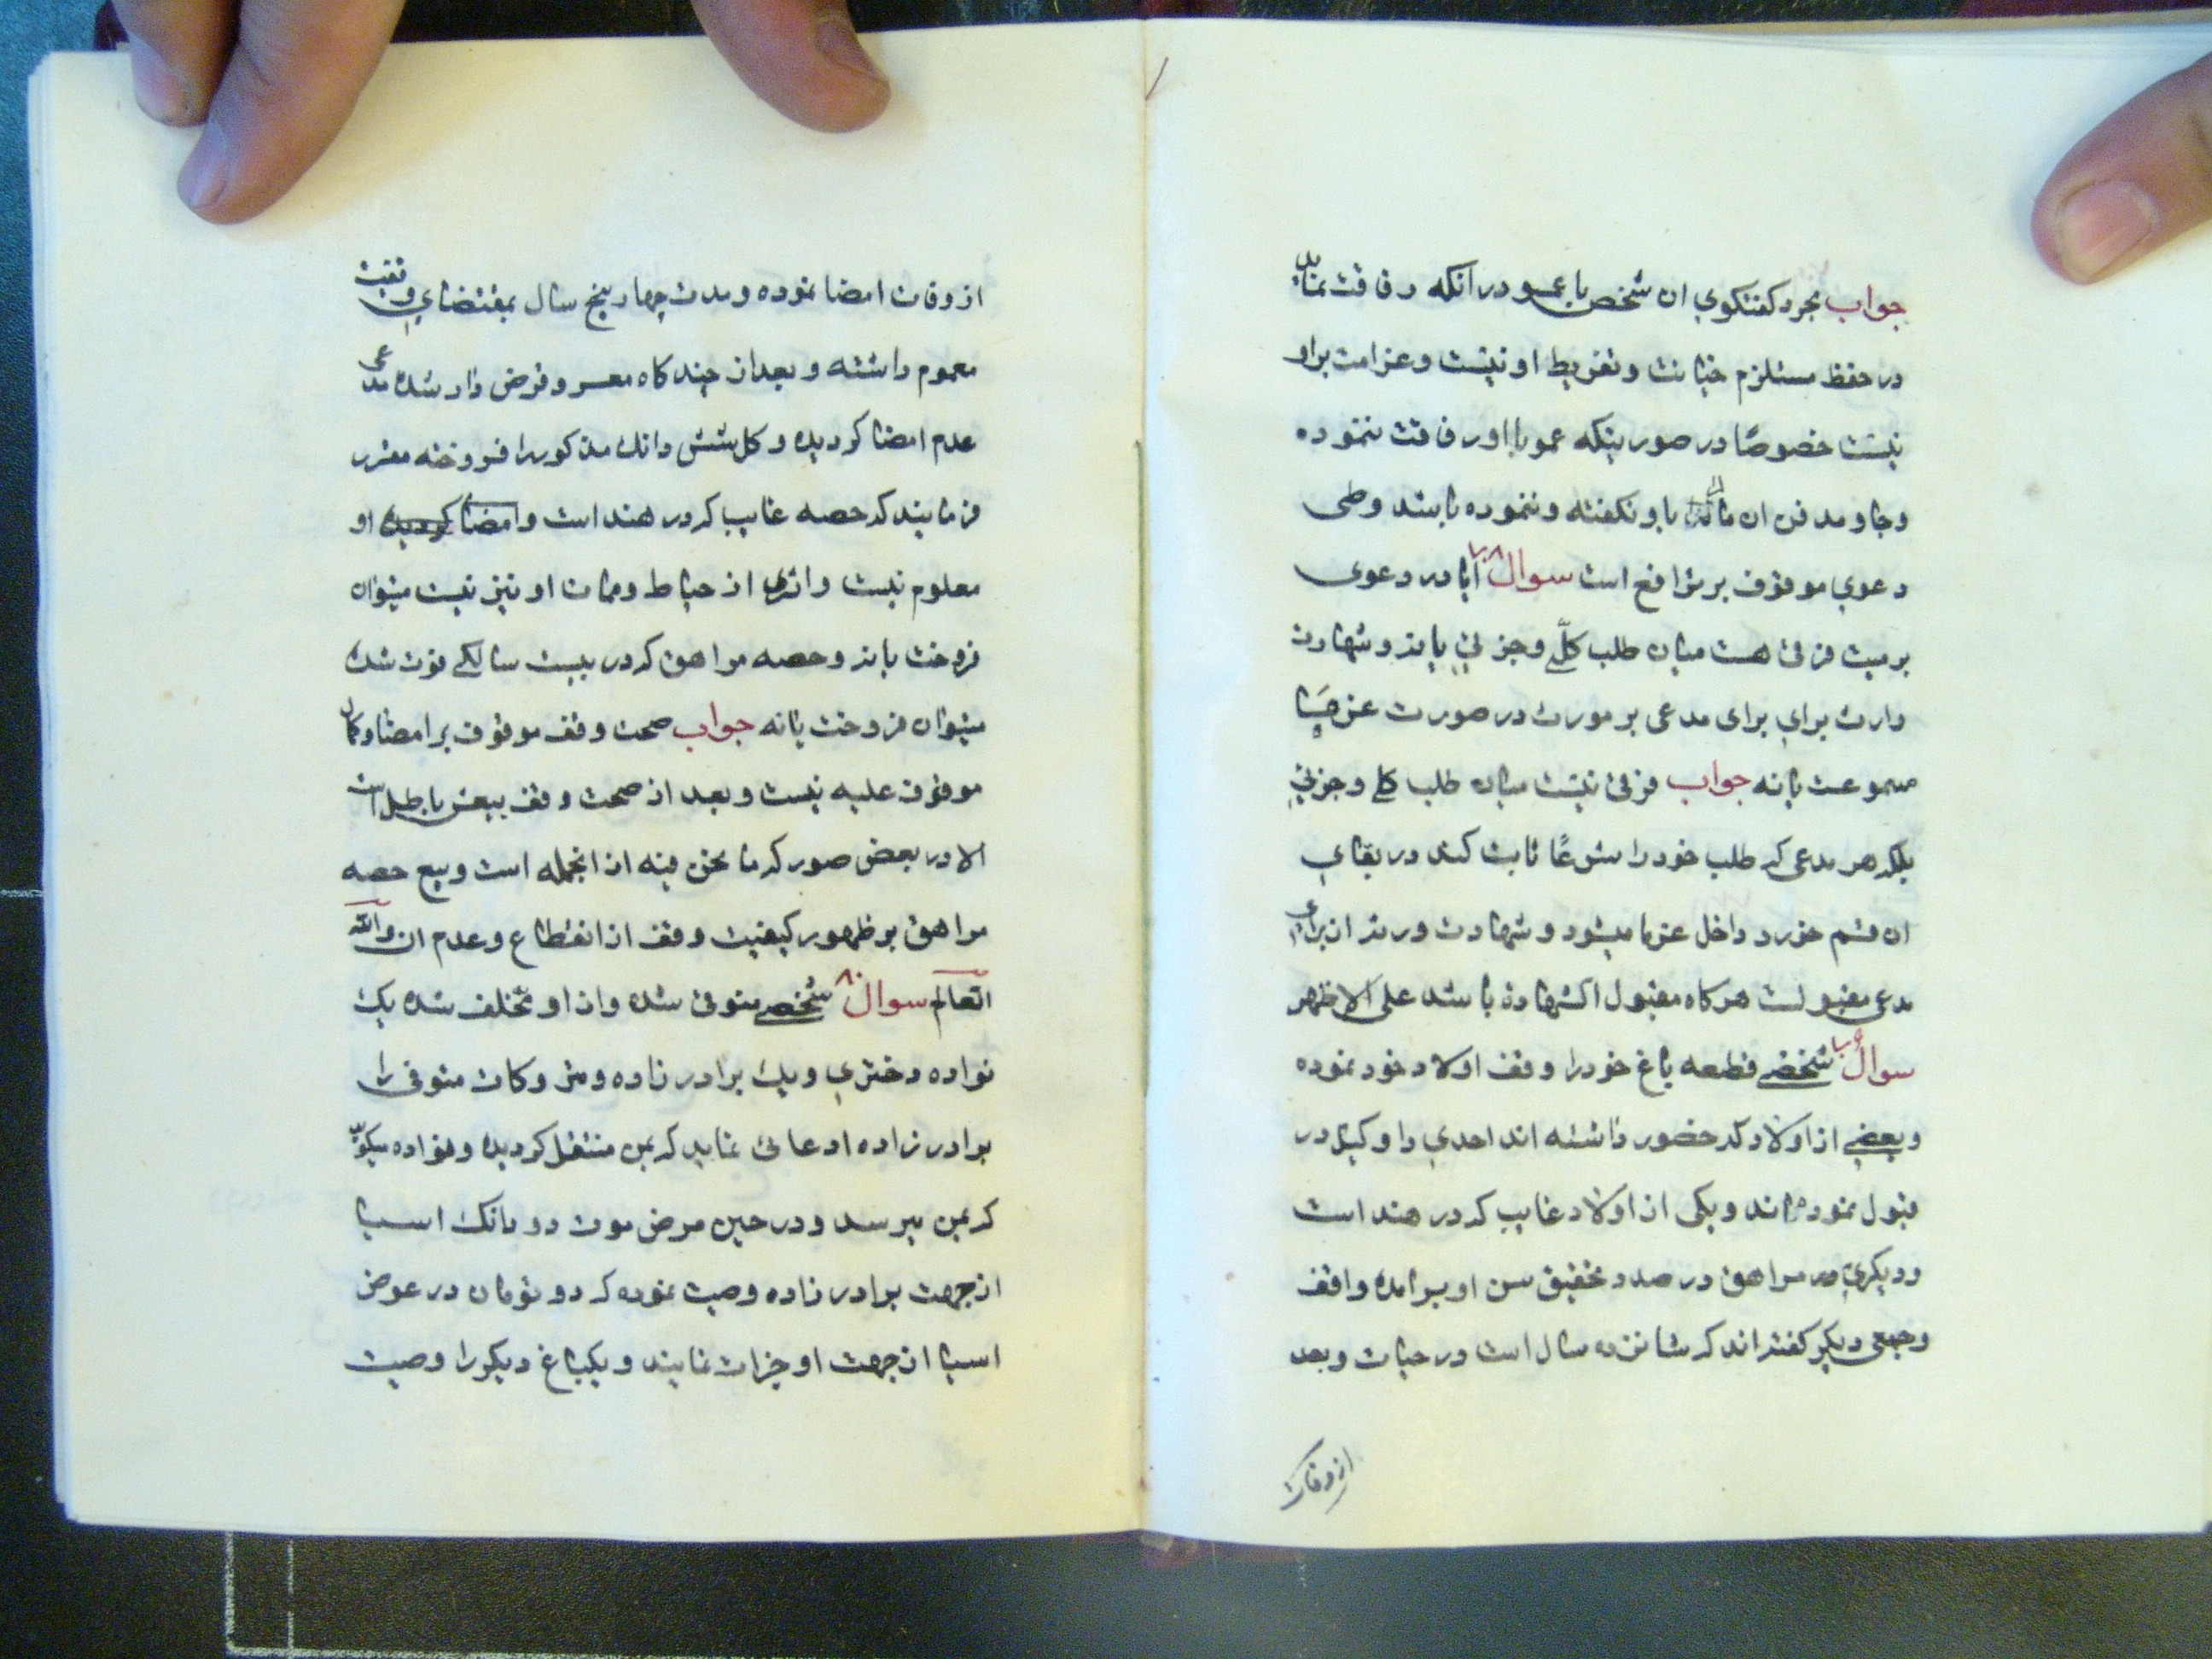 جواب بمجرد کفتکوي ان شخص با عمو در انکه رفاقت نماید
در حفظ مستلزم خیانت و تفریط او نیست و غرامت براو
نیست خصوصًا در صورتیکه عمو با او رفاقت ننموده
وجا و مدفن ان مال باو نکفته و ننموده باشد وطی
دعوي موقوف بر ترافع است سوال ۷۸ ایا در دعوی
بر میت فرقی هست میان طلب کلّی وجزئي یا نه وشهادت
وارث براي برای مدعی بر مورث در صورت
مسموعست یا نه جواب فرقی نیست میان طلب کلی وجزئي
بلکه هر مدعی که طلب خود را شرعًا ثابت کند در بقاي
ان قسم خورد داخل غرما میشود و شهادت ورثه از براي
مدعی مقبولست هرکاه مقبول الشهادة باشد علی الاظهر
سوال ۷۹ شخصی قطعه باغ خود را وقف اولاد خود نموده
وبعضی از اولاد که حضور داشته اند احدي را وکیل در
قبول نموده اند ویکی از اولاد غایب که در هند است
ودیکري مراهق در صدد تحقیق سن او برامده واقف
وجمعی دیکر کفته اند که شانزده سال است در حیات وبعد
از وفات
از وفات امضا نموده ومدت چهار پنج سال بمقتضاي وقفیت
معموم داشته وبعد از چند کاه معسر وقرض دار شده مدعی
عدم امضا کردیده وکل شش دانك مذکور را فروخته مقرر
فرمایند که حصه غایب که در هند است وامضا کردیده او
معلوم نیست واثری از حیاط وممات او نیز نیست میتوان
فروخت یا نه وحصه مراهق که در بیست سالکی فوت شده
میتوان فروخت یا نه جواب صحت وقف موقوف بر امضا وکمال
موقوف علیه نیست وبعد از صحت وقف بیعش باطل است
الا در بعض صور که ما نحن فیه از انجمله است وبیع حصه
مراهق بر ظهور کیفیت وقف از انقطاع وعدم ان والله
العالم سوال ۸۰ شخصی متوفی شده واز او تخلف شده یک
نواده دختري ویك برادر زاده ومتروکات متوفی را
برادر زاده ادعائی نماید که بمن منتقل کردیده ونواده میکوید
که بمن میرسد ودر حین مرض موت دو دانك اسیا
از جهت برادر زاده وصیت نموده که دو تومان در عوض
اسیا از جهت او خیرات نمایند ویکباغ دیکر را وصیت